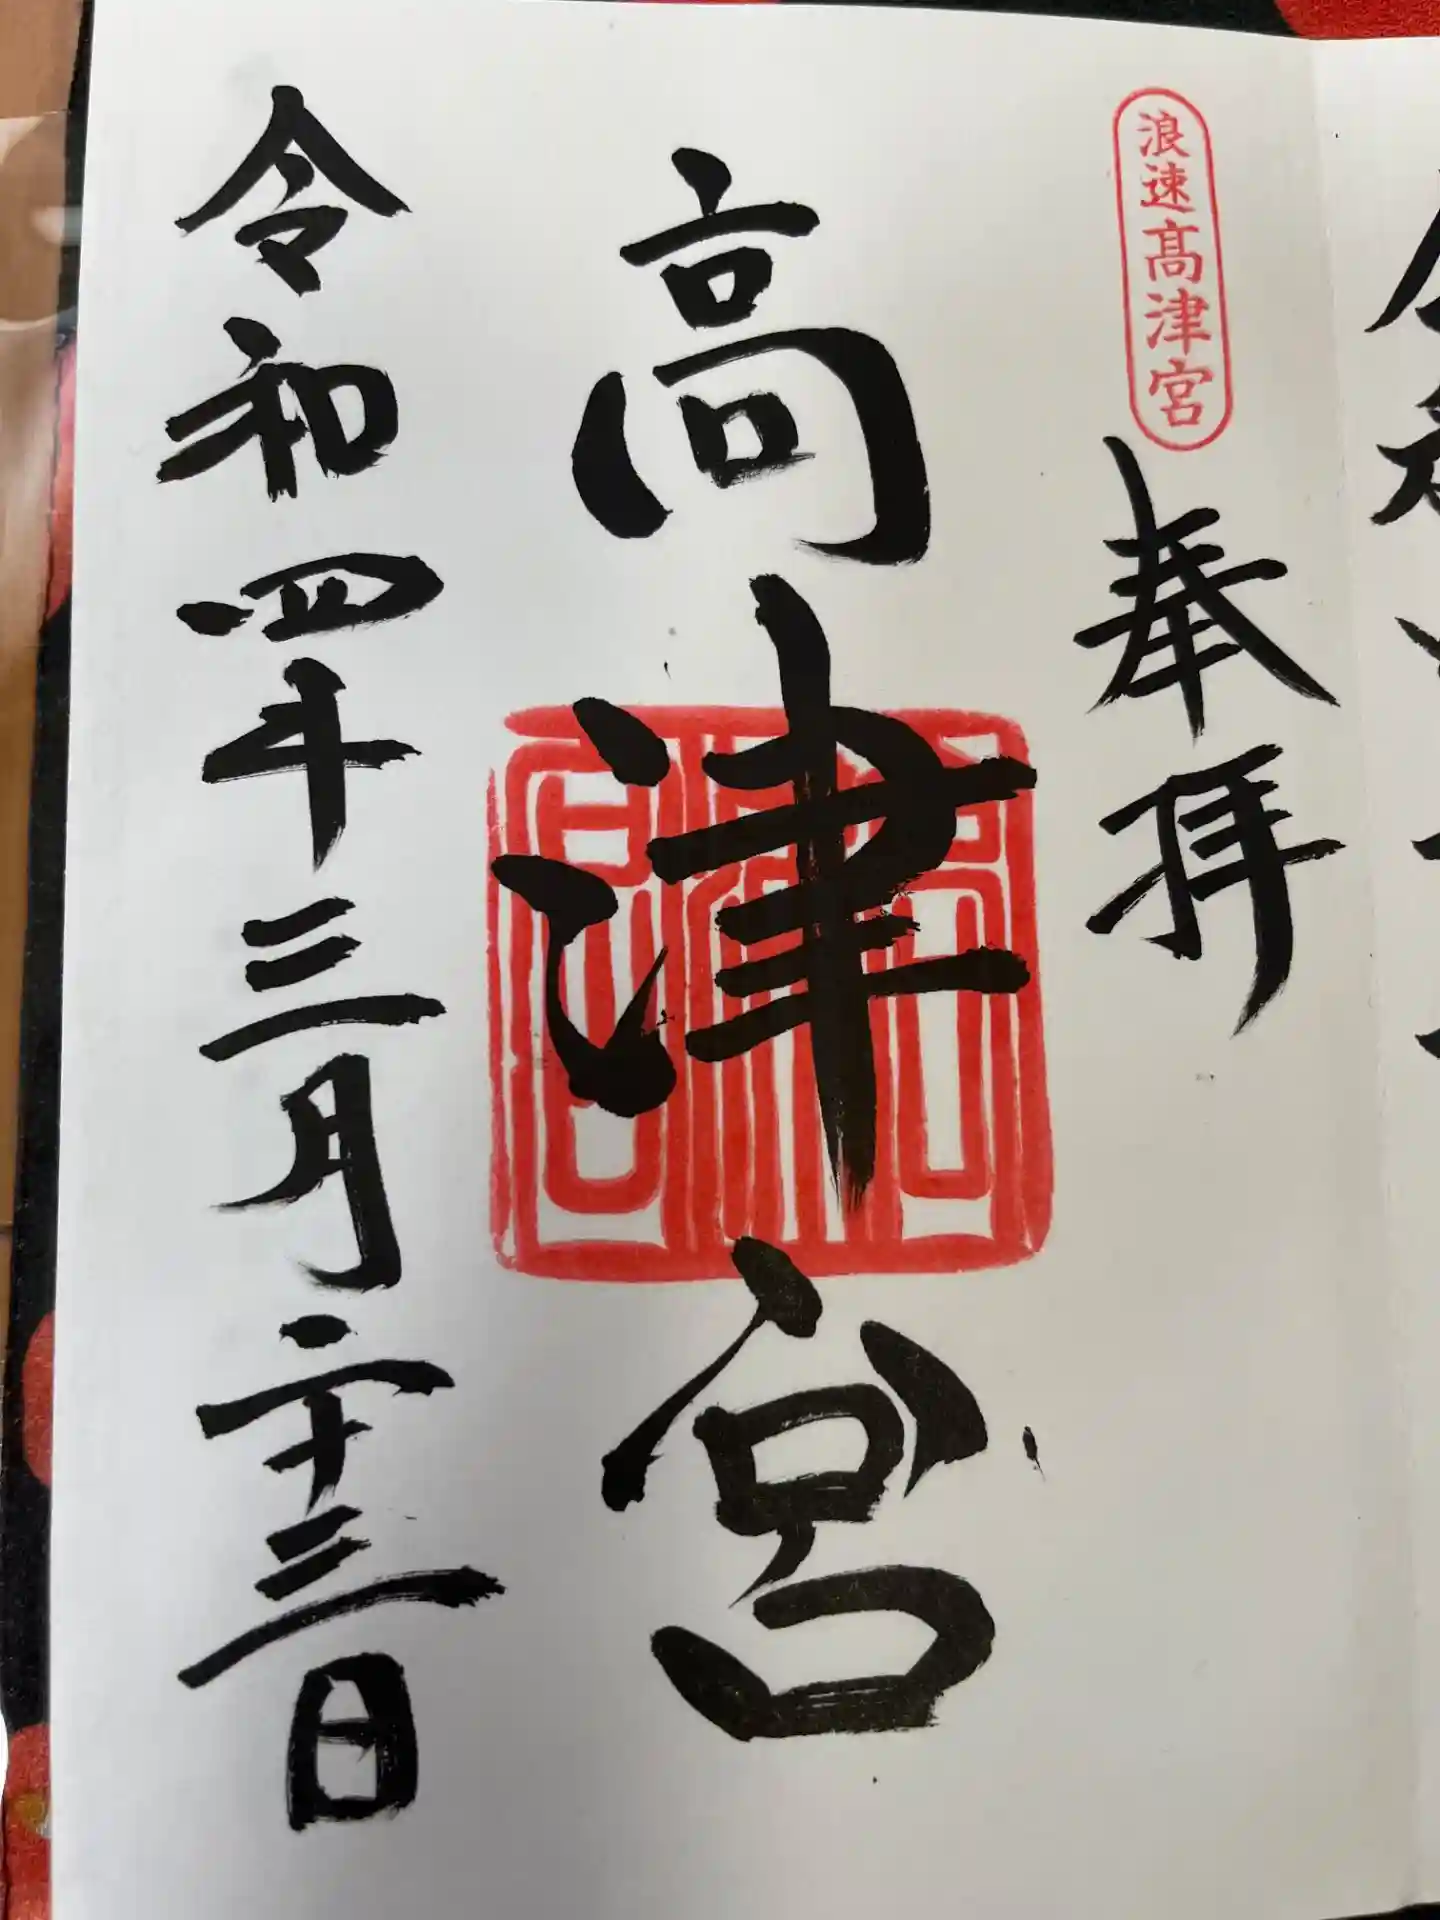 浪速髙津宮
奉拝
高津宮
高津宮
令和四年三月二十三日